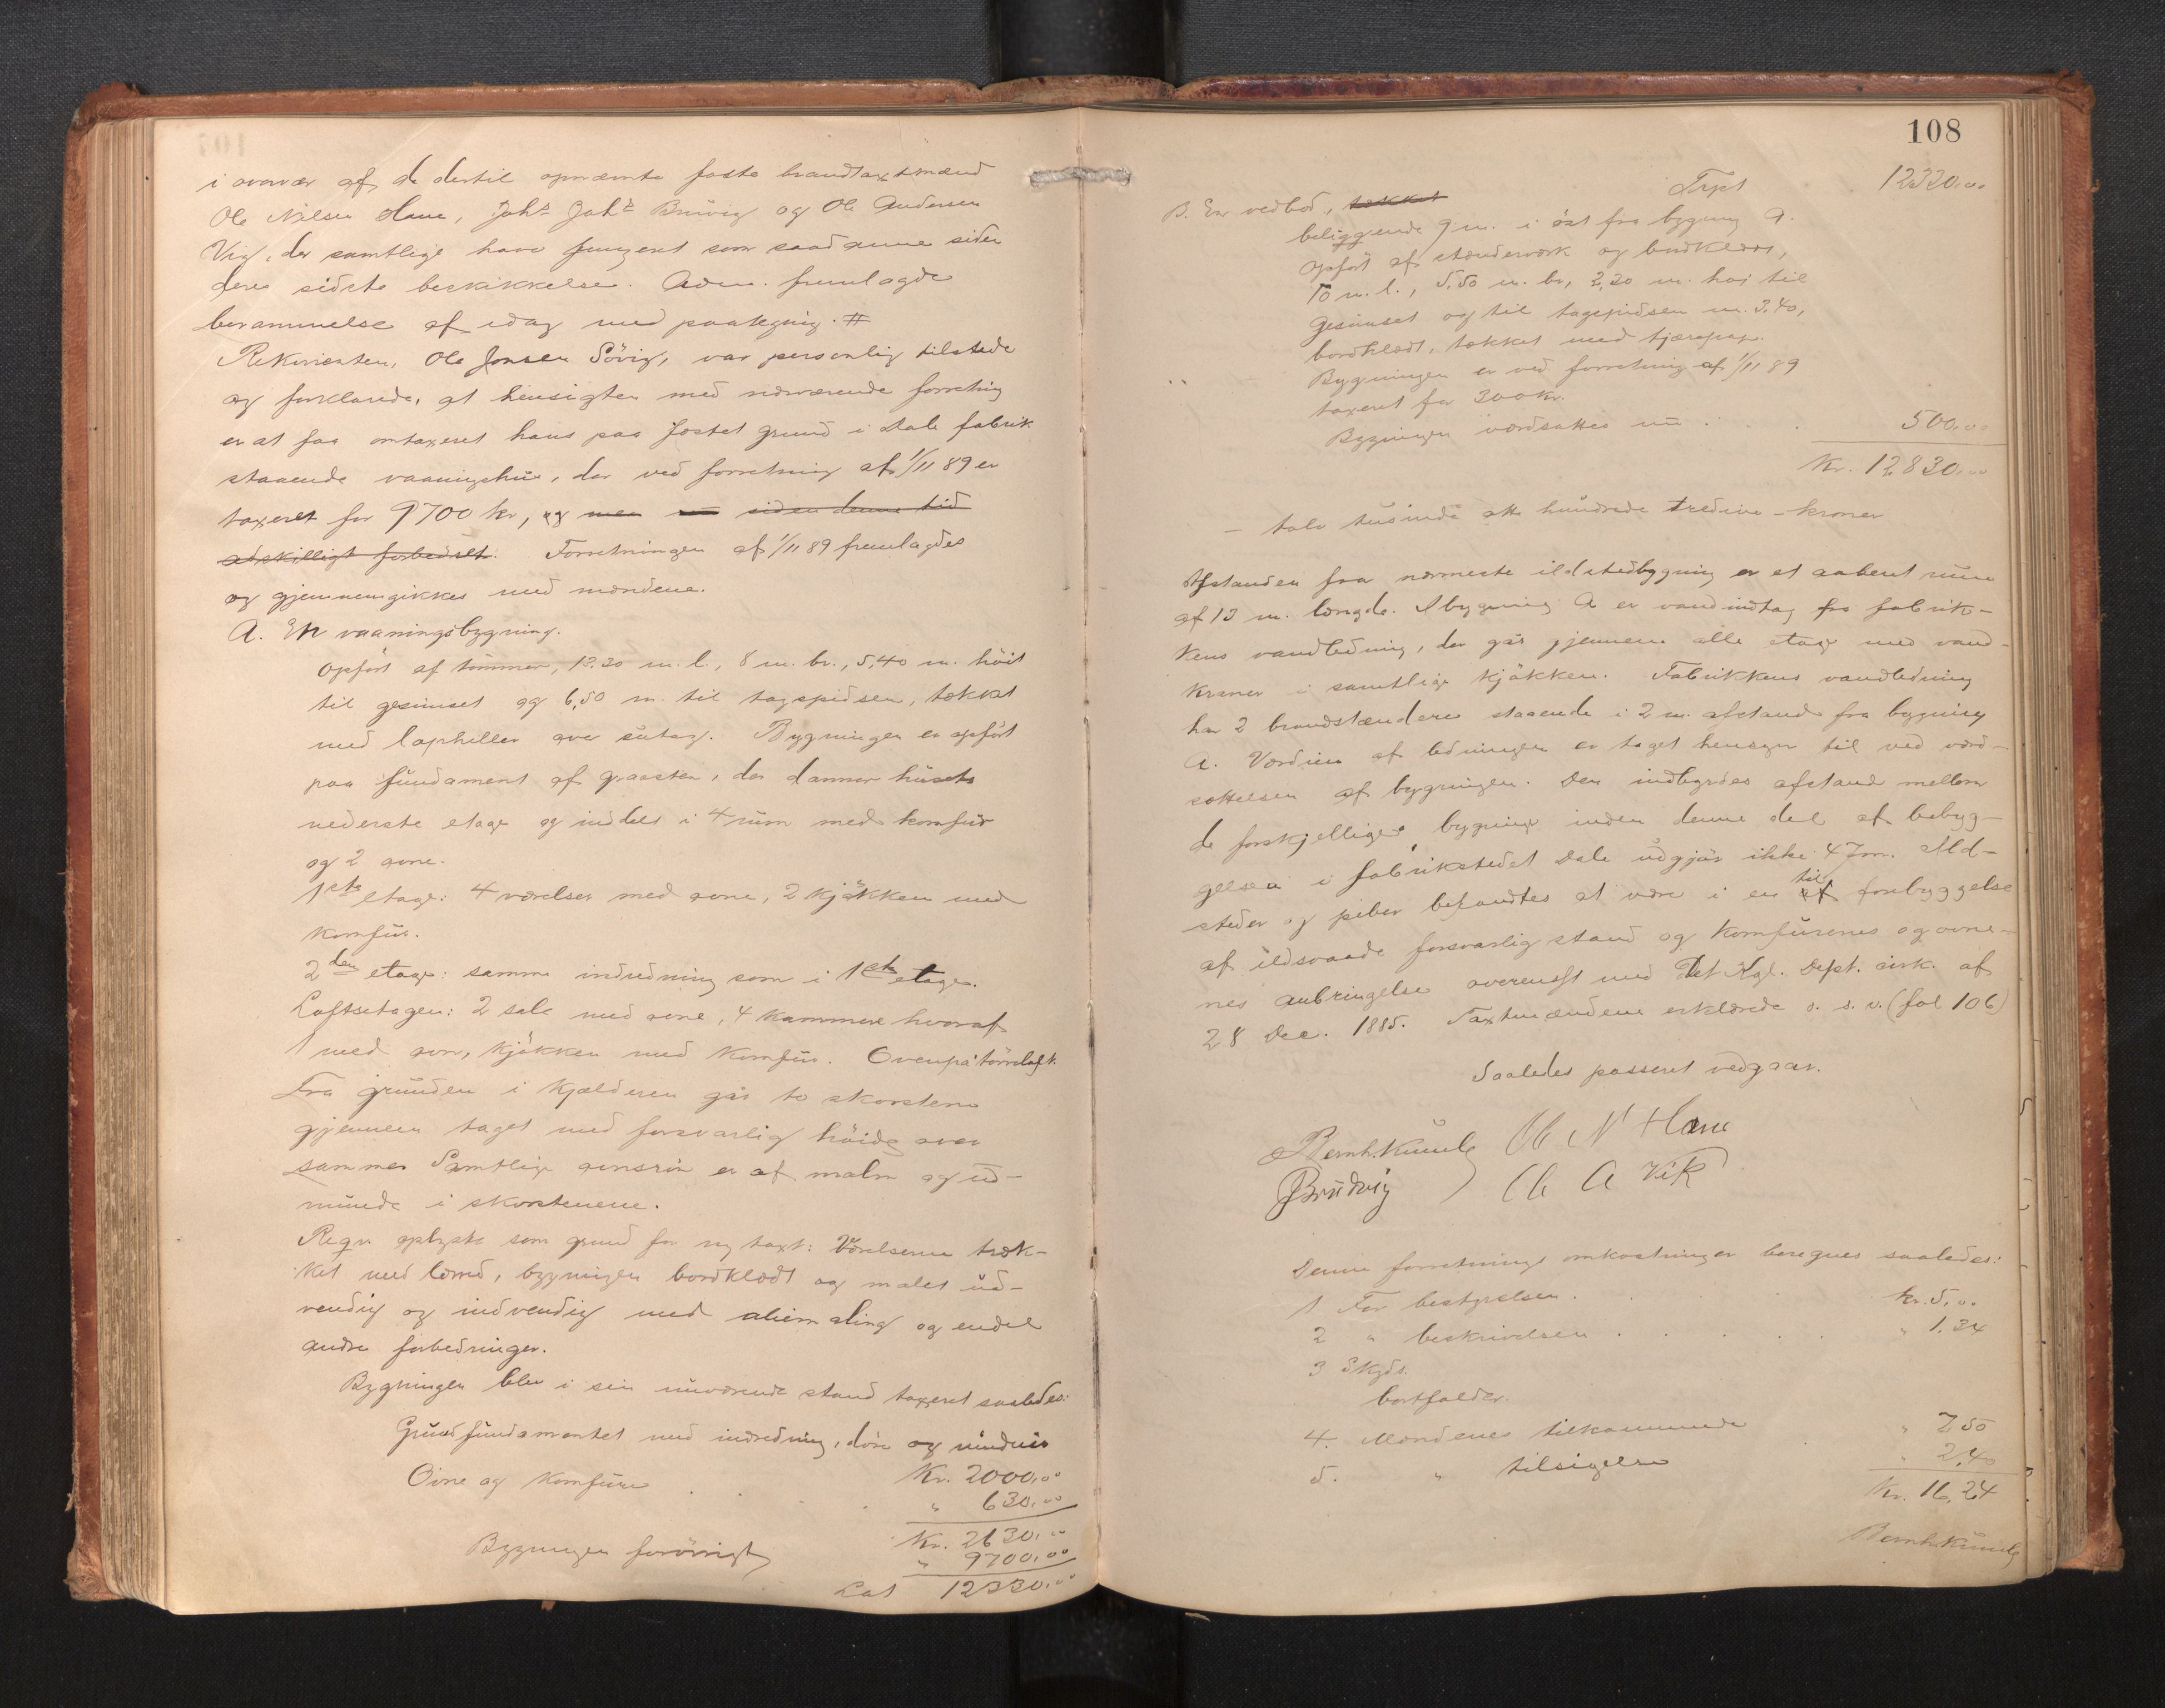 i overvær af de dertil opnævnte faste brandtaxtmænd
Ole Nilsen Hane, Johs. Johs. Brüvig og Ole Andersen
Vig, der samtlige have fungeret som saadanne siden
deres sidste beskikkelse. Adm. fremlagde
berammelse af idag med paategning. #
Rekvirenten, Ole Jonsen Sövig, var personlig tilstede
og forklarede, at hensigten med nærværende forretning
er at faa omtaxeret hans paa fæstet grund i Dale fabrik
staaende vaaningshus, der ved forretning af 1/11 89 er
taxeret for 9700 kr, og men siden denne tid
adskilligt forbedret. Forretningen af 1/11 89 fremlagdes
og gjennemgikkes med mændene.
A. En vaaningsbygning.
Opfört af tömmer, 13.30 m. l., 8 m. br., 5,40 m. höit
til gesimset og 6,50 m. til tagspidsen, tækket
med laphiller over sutag. Bygningen er opfört
paa fundament af graasten, der danner husets
nederste etage og inddelt i 4 rum med komfur
og 2 ovne.
1ste etage: 4 værelser med ovne, 2 kjökken med
komfur.
2den etage: samme indredning som i 1ste etage.
Loftsetagen: 2 sale med ovne, 4 kammere hvoraf
1 med ovn, kjökken med komfur. Ovenpå törreloft.
Fra grunden i kjælderen går to skorstene
gjennem taget med forsvarlig höide over
samme. Samtlige ovnsrör er af malm og ud-
munde i skorstenene.
Reqv. oplyste som grund for ny taxt: Værelserne træk-
ket med lærred, bygningen bordklædt og malet ud-
vendig og indvendig med oliemaling og endel
andre forbedringer.
Bygningen blev i sin nuværende stand taxeret saaledes:
Grundfundamentet med indredning, döre og vinduer
Kr. 2000,00
Ovne og komfure . . . " 630,00
Kr. 2630,00
Bygningen forövrigt " 9700,00
Lat 12330,00
108
Trpt 12330,00
B. En vedbod, tækket
beliggende 9 m. i öst fra bygning A.
Opfört af stænderværk og bordklædt,
10 m. l., 5,50 m. br, 2,30 m. höi til
gesimset og til tagspidsen m. 3,40,
bordklædt, tækket med tjærepap.
Bygningen er ved forretning af 1/11 89
taxeret for 300 kr.
Bygningen værdsattes nu . . . 500,00
Kr. 12830,00
- tolv tusinde otte hundrede tredive - kroner
Afstanden fra nærmeste ildstedbygning er et aabent rum
af 13 m. længde. I bygning A er vandindtag fra fabrik-
kens vandledning, der går gjennem alle etager med vand-
kraner i samtlige kjökken. Fabrikkens vandledning
har 2 brandstændere staaende i 2 m. afstand fra bygning
A. Værdien af ledningen er taget hensyn til ved værd-
sættelsen af bygningen. Den indbyrdes afstand mellem
de forskjellige bygninger inden denne del af bebyg-
gelsen i fabrikstedet Dale udgjör ikke 47 m. Ild-
steder og piber befandtes at være i en af til forebyggelse
af ildsvaade forsvarlig stand og komfurenes og ovne-
nes anbringelse overensst med Det Kgl. Dept. cirk. af
28 Dec. 1885. Taxtmændene erklærede o. s. v. (fol 106)
Saaledes passeret vedgaar.
Ole N Hane
Brüdvig Ole A Vik
Denne forretnings omkostninger beregnes saaledes:
1 For bestyrelsen . . . kr. 5,00
2 " beskrivelsen . . . . " 1.34
3 Skyds.
bortfalder.
4. Mændenes tilkommende . " 7,50
5. " tilsigelse " 2,40
Kr. 16,24